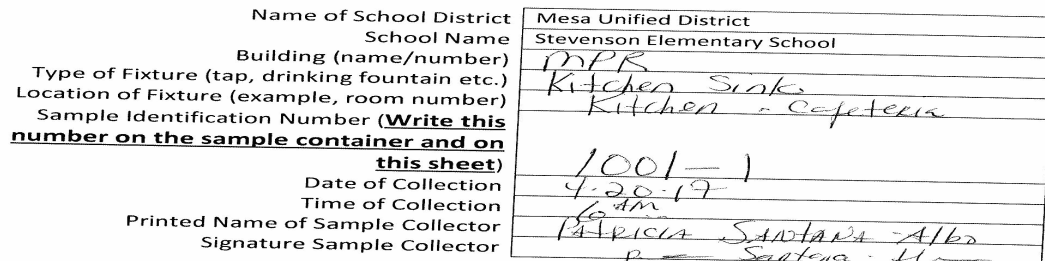 Name of School District Mesa Unified District
School Name Stevenson Elementary School
Building (name/number) MPR
Type of Fixture (tap, drinking fountain etc.) Kitchen Sink
Location of Fixture (example, room number) Kitchen - Cafeteria
Sample Identification Number (Write this
number on the sample container and on
this sheet) 1001-1
Date of Collection 4-20-17
Time of Collection AM
Printed Name of Sample Collector PATRICIA SANTANA-Albo
Signature Sample Collector Santana